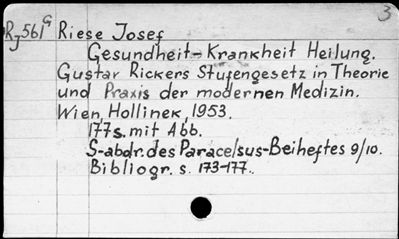 3
RJ561G Riese Josef
Gesundheit-Krankheit Heilung.
Gustav Rickers Stufengesetz in Theorie
und Praxis der modernen Medizin.
Wien, Hollinek, 1953.
177s. mit Abb.
S-abdr. des Paracelsus-Beiheftes 9/10.
Bibliogr. s. 173-177.